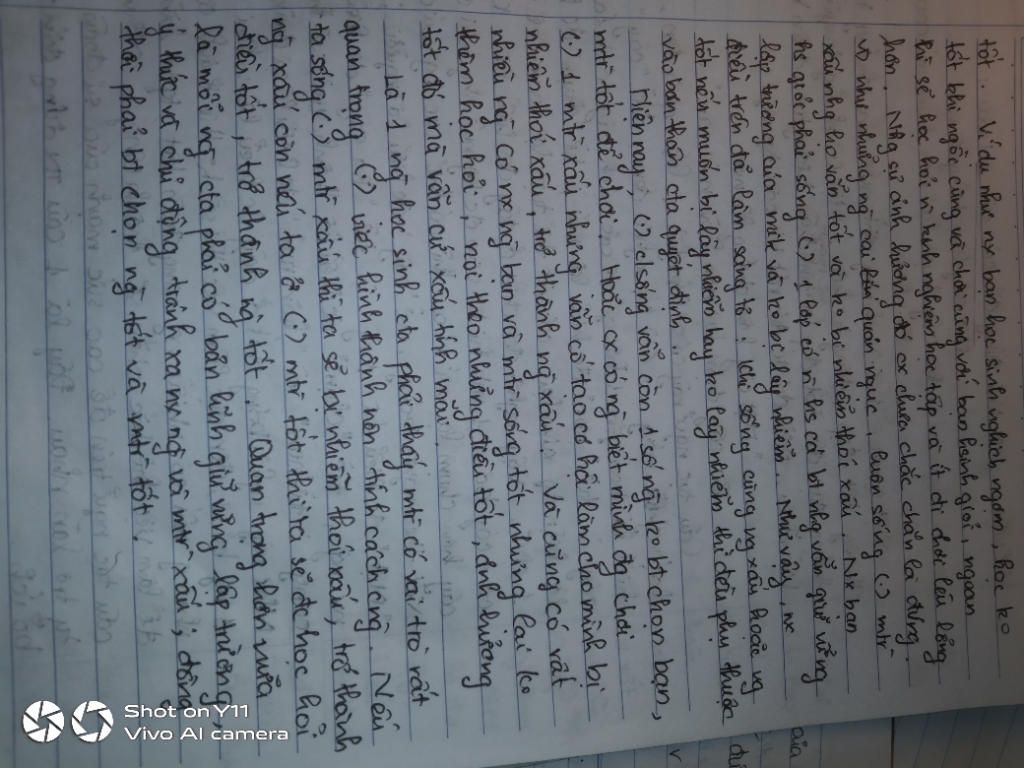 tốt. Ví dụ như nx bạn học sinh nghịch ngợm, học ko
tốt khi ngồi cùng và chơi cùng với bạn hsinh giỏi, ngoan
thì sẽ học hỏi n kinh nghiệm học tập và ít đi chơi lêu lổng
hơn. Nhg sự ảnh hưởng đó cx chưa chắc chắn là đúng.
Vì như những cai tiệm quán ngục, luôn sống (.) mtr
xấu nhg họ vẫn tốt và ko bị nhiễm thói xấu. Nx bạn
hs giỏi phải sống (.) 1 lớp có n hs cá bt nhg vẫn giữ vững
lập trường của mk và ko bị lây nhiễm. Như vậy, nx
điều trên đã làm sáng tỏ: chỉ sống cùng ng xấu hoặc ng
tốt nếu muốn bị lây nhiễm hay ko lây nhiễm thì đều phụ thuộc
vào bản thân ta quyết định.
Hiện nay (.) c/sống vẫn còn 1 số ng̀ ko bt chọn bạn,
mtr tốt để chơi. Hoặc cx có ng̀ biết mình đg chơi
(.) 1 mtr xấu nhưng vẫn cố tạo cơ hội làm cho mình bị
nhiễm thói xấu, trở thành ng̀ xấu. Và cũng có rất
nhiều ng̀ có nx ng̀ bạn và mtr sống tốt nhưng lại ko
thèm học hỏi, noi theo những điều tốt, ảnh hưởng
tốt đó mà vẫn cứ xấu tính mãi.
Là 1 ng̀ học sinh ta phải thấy mtr có vai trò rất
quan trọng (.) việc hình thành nên tính cách ctg. Nếu
ta sống (.) mtr xấu thì ta sẽ bị nhiễm thói xấu, trở thành
ng̀ xấu còn nếu ta ở (.) mtr tốt thì ta sẽ đc học hỏi
điều tốt, trở thành ng̀ tốt. Quan trọng hơn nữa
là mỗi ng̀ cta phải có bản lĩnh giữ vững lập trường,
ý thức và chủ động tránh xa nx ng̀ và mtr xấu; đồng
thời phải bt chọn ng̀ tốt và mtr tốt.
Shot on Y11
Vivo AI camera